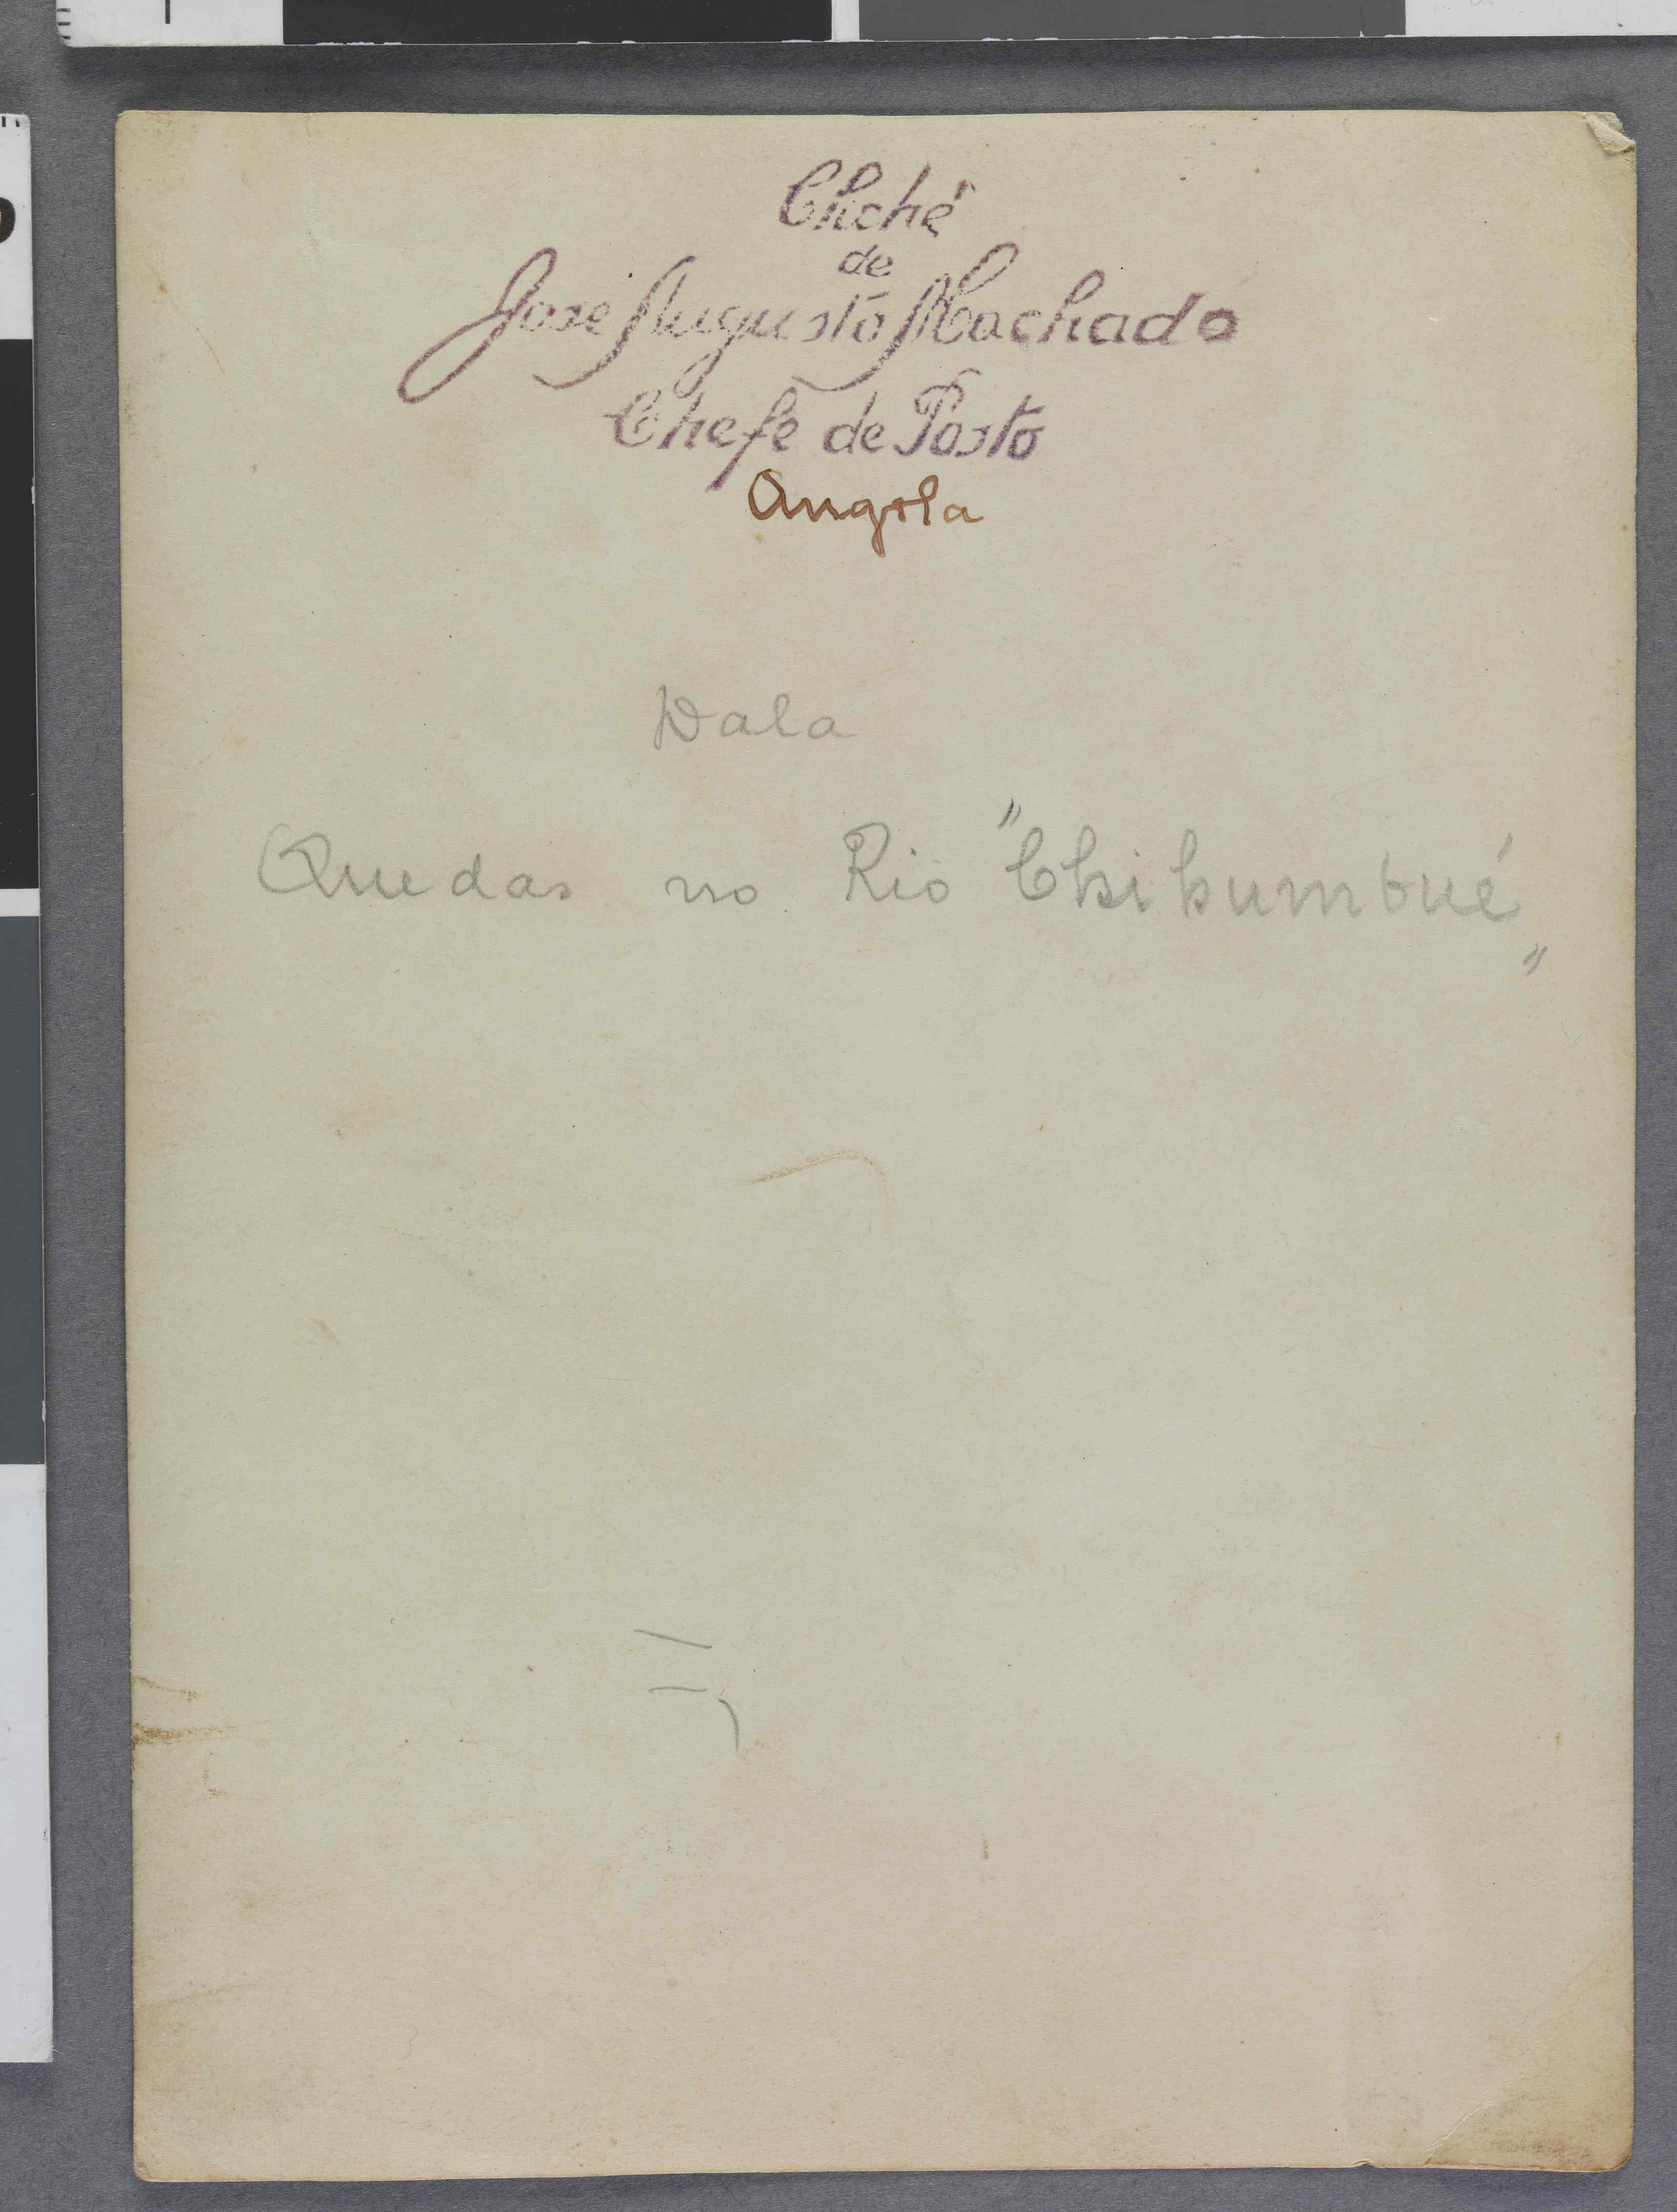 Cliché
de
José Augusto Machado
Chefe de Posto
Angola
Dala
Quedas no Rio "Chihumbué"